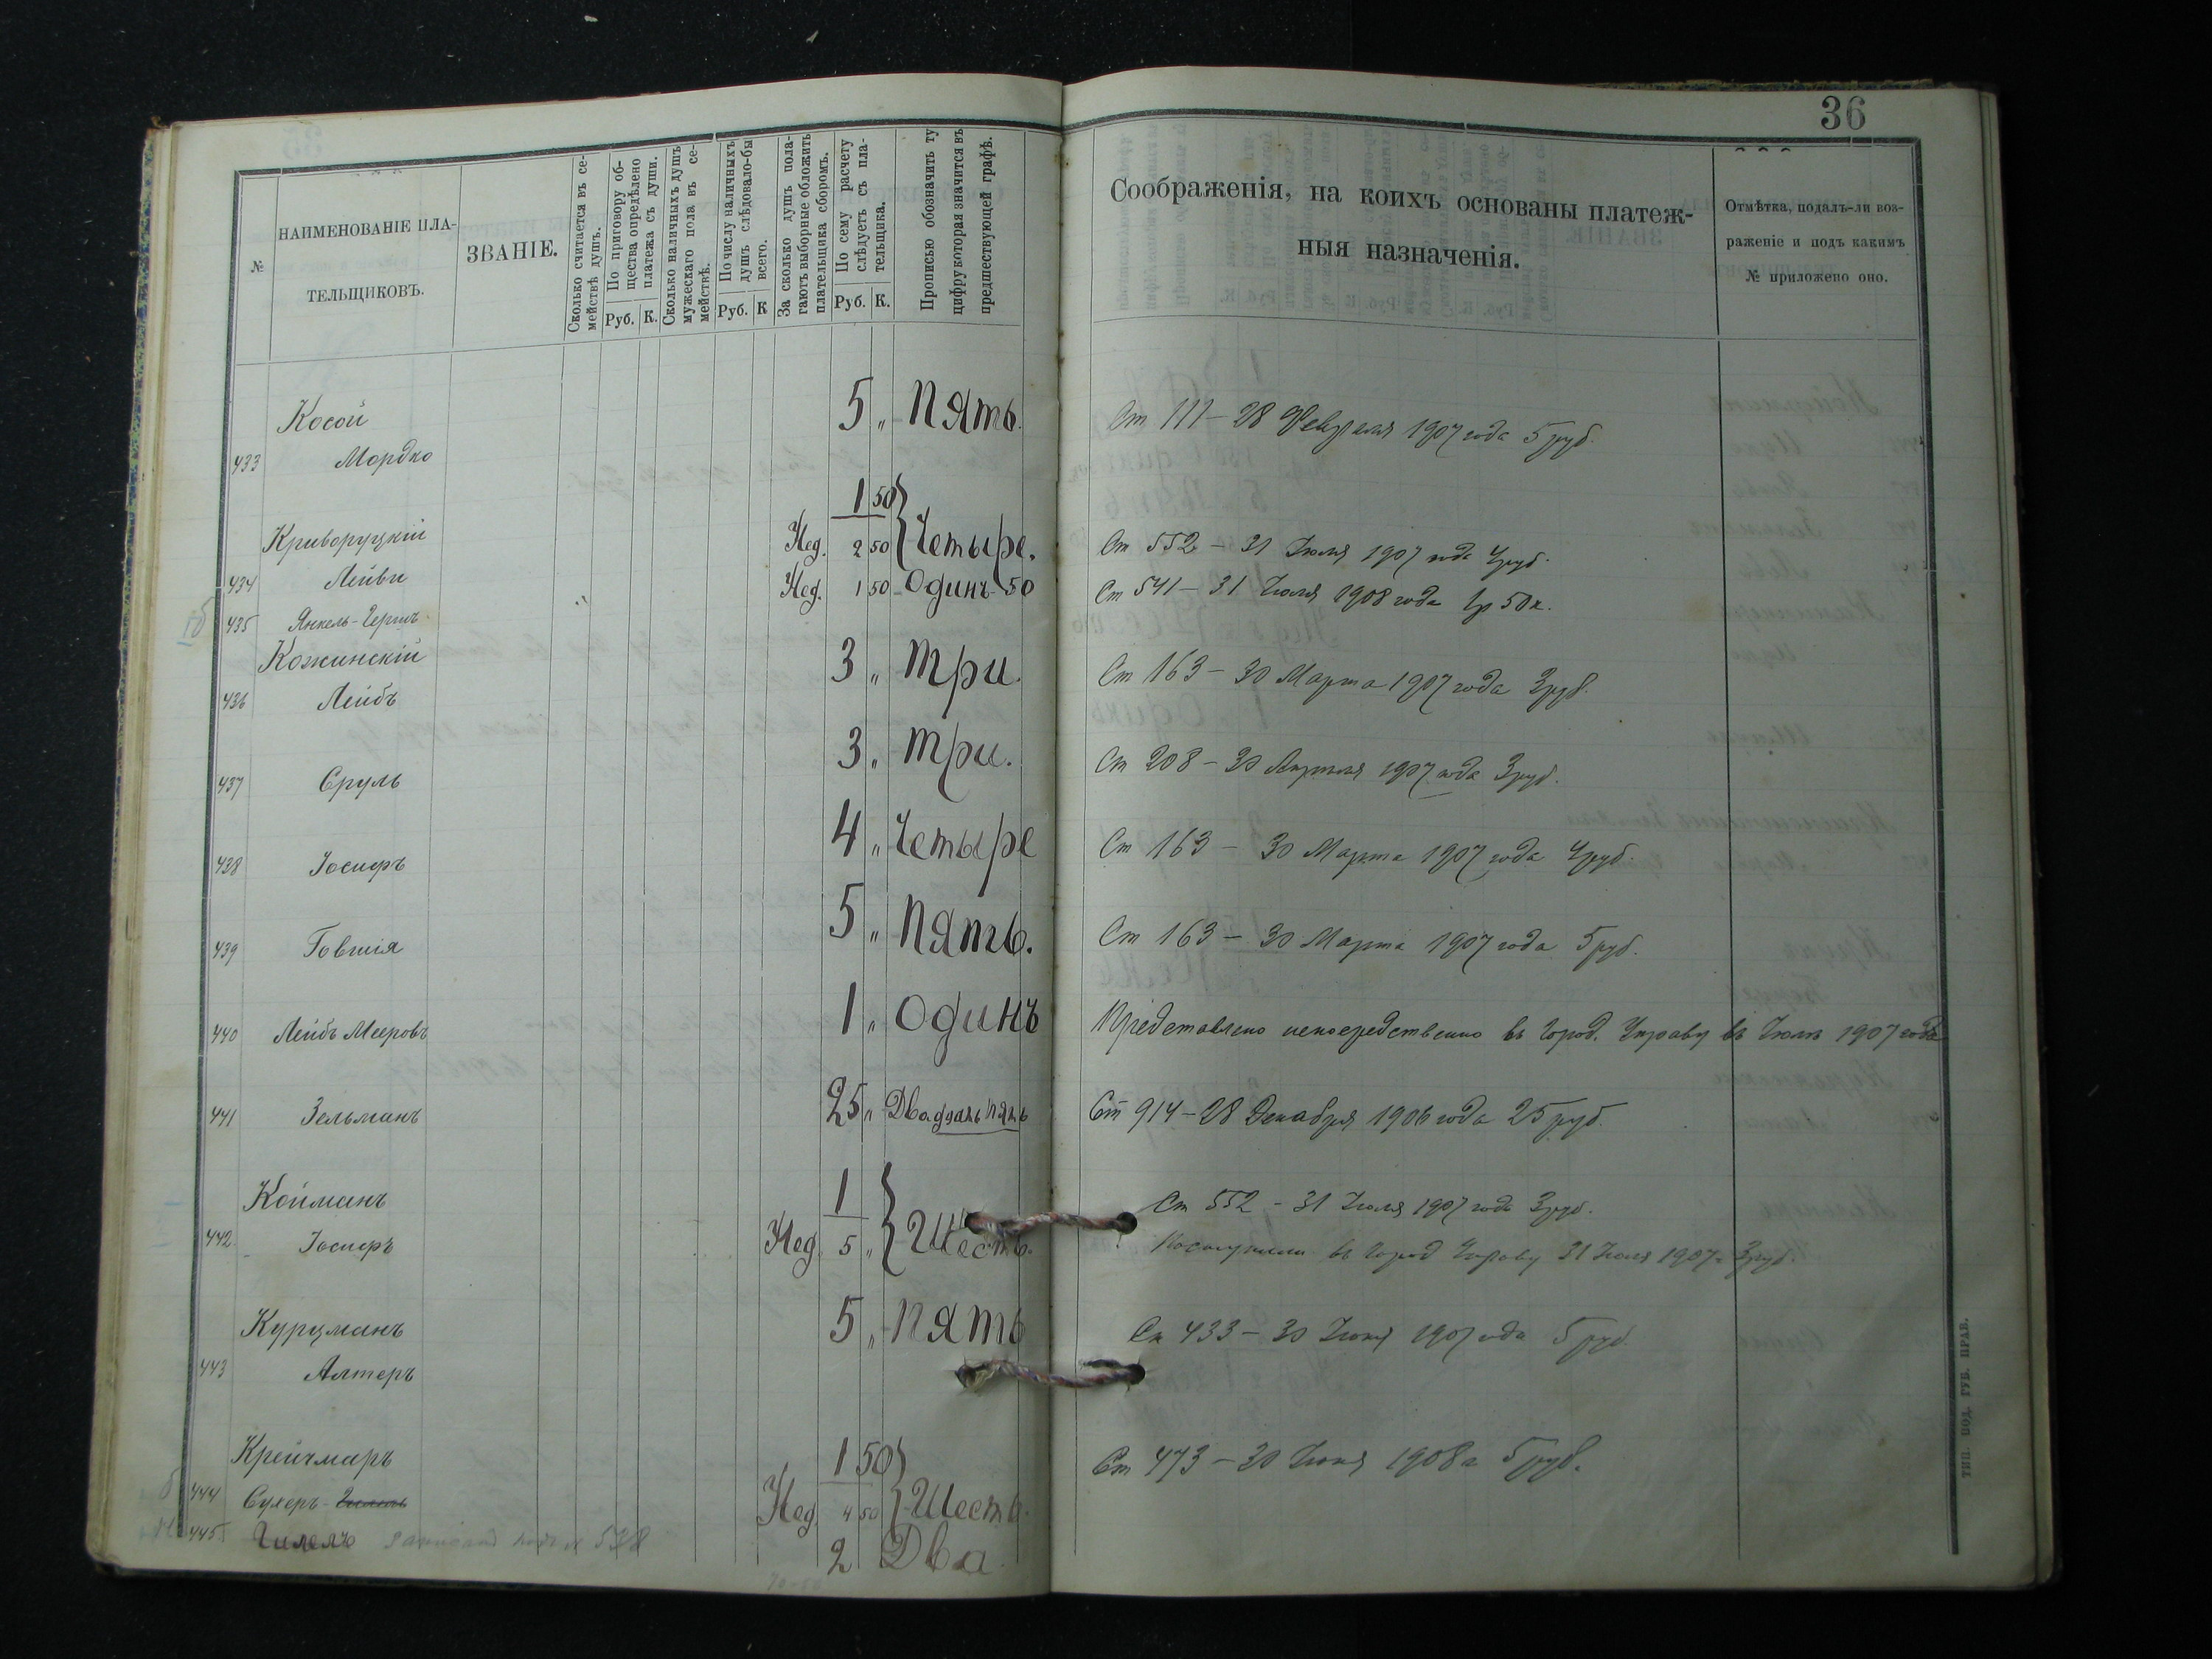 36
№
НАИМЕНОВАНІЕ ПЛА-
ТЕЛЬЩИКОВЪ.
ЗВАНІЕ.
Сколько считается въ се-
мействѣ душъ.
По приговору об-
щества опредѣлено
платежа съ души.
Руб. К.
Сколько наличныхъ душъ
мужескаго пола въ се-
мействѣ.
По числу наличныхъ
душъ слѣдовало-бы
всего.
Руб. К
За сколько душъ пола-
гаютъ выборные обложить
плательщика сборомъ.
По сему расчету
слѣдуетъ съ пла-
тельщика.
Руб. К.
Прописью обозначить ту
цифру которая значится въ
предшествующей графѣ.
Соображенія, на коихъ основаны платеж-
ныя назначенія.
Отмѣтка, подалъ-ли воз-
раженіе и подъ какимъ
№ приложено оно.
Косой 5 „ Пять. Ст 111 – 28 Февраля 1907 года 5 руб.
433 Мордко
1 50
Криворуцкій Нед. 2 50 Четыре. Ст 552 – 31 Іюля 1907 года 4 руб.
434 Лейви Нед. 1 50 Одинъ 50 Ст 541 – 31 Іюля 1908 года 1р 50к.
435 Янкель-Гершъ
Кожинскій 3 „ Три. Ст 163 – 30 Марта 1907 года 3 руб.
436 Лейбъ
437 Сруль 3 „ Три. Ст 208 – 30 Апрѣля 1907 года 3 руб.
438 Іосифъ 4 „ Четыре Ст 163 – 30 Марта 1907 года 4 руб.
439 Говшія 5 „ Пять. Ст 163 – 30 Марта 1907 года 5 руб.
440 Лейбъ Мееровъ 1 „ Одинъ Представлено непосредственно въ Город. Управу въ Іюлѣ 1907 года
441 Зельманъ 25 „ Двадцать пять Ст 914 – 28 Декабря 1906 года 25 руб.
Койманъ 1 Ст 552 – 31 Іюля 1907 года 3 руб.
442 Іосифъ Нед. 5 „ Шесть. въ Город Управу 31 Іюля 1907 г 3 руб.
Курцманъ 5 „ Пять Ст 433 – 30 Іюня 1907 года 5 руб.
443 Алтеръ
Крейчмаръ 1 50 Ст 473 – 30 Іюня 1908 г 5 руб.
444 Сухеръ- Нед. 4 50 Шесть.
445 Гилель 538 2 Два.
ТИП. ПОД. ГУБ. ПРАВ.